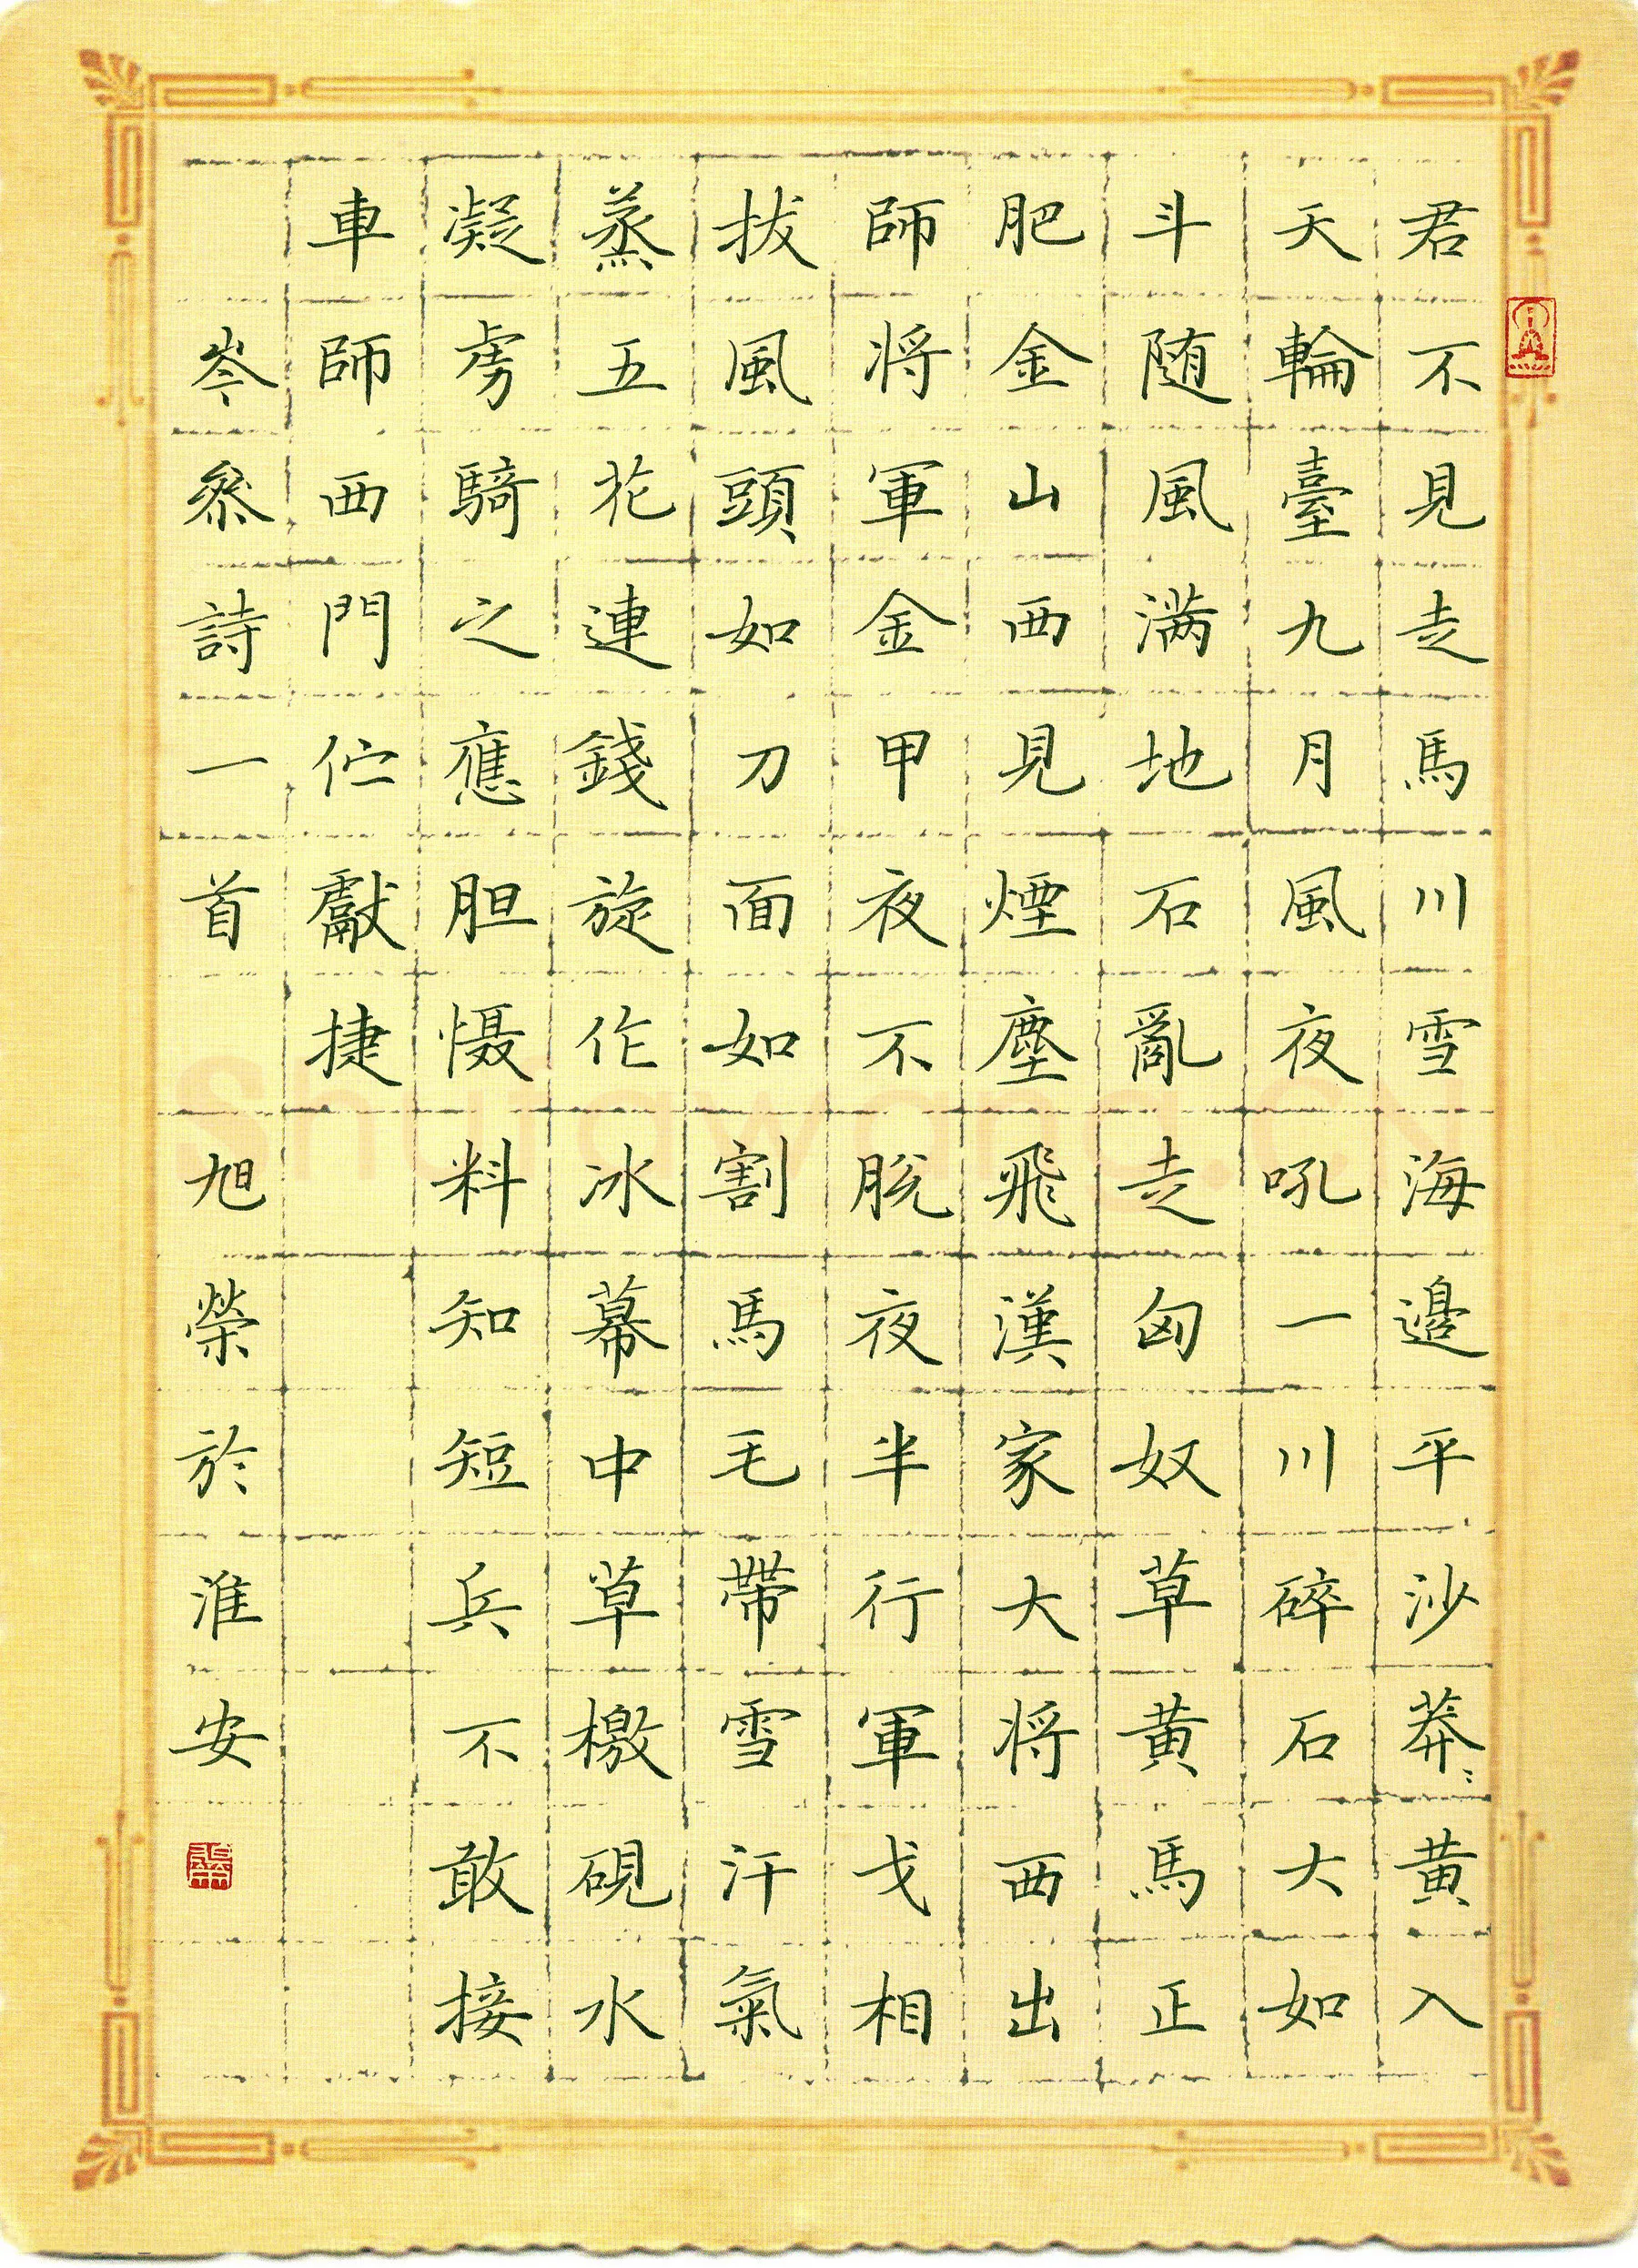 君不見走馬川雪海邊平沙莽〻黄入
天輪臺九月風夜吼一川碎石大如
斗随風满地石亂走匈奴草黄馬正
肥金山西見煙塵飛漢家大将西出
師将軍金甲夜不脱夜半行軍戈相
拔風頭如刀面如割馬毛帶雪汗氣
蒸五花連錢旋作冰幕中草檄硯水
凝虏騎之應胆慑料知短兵不敢接
車師西門伫獻捷
岑參詩一首 旭榮於淮安